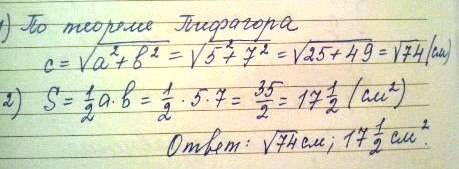 1) По теореме Пифагора
c = √a² + b² = √5² + 7² = √25 + 49 = √74 (см)
2) S = 1/2 a·b = 1/2 · 5 · 7 = 35/2 = 17 1/2 (см²)
Ответ: √74 см; 17 1/2 см².